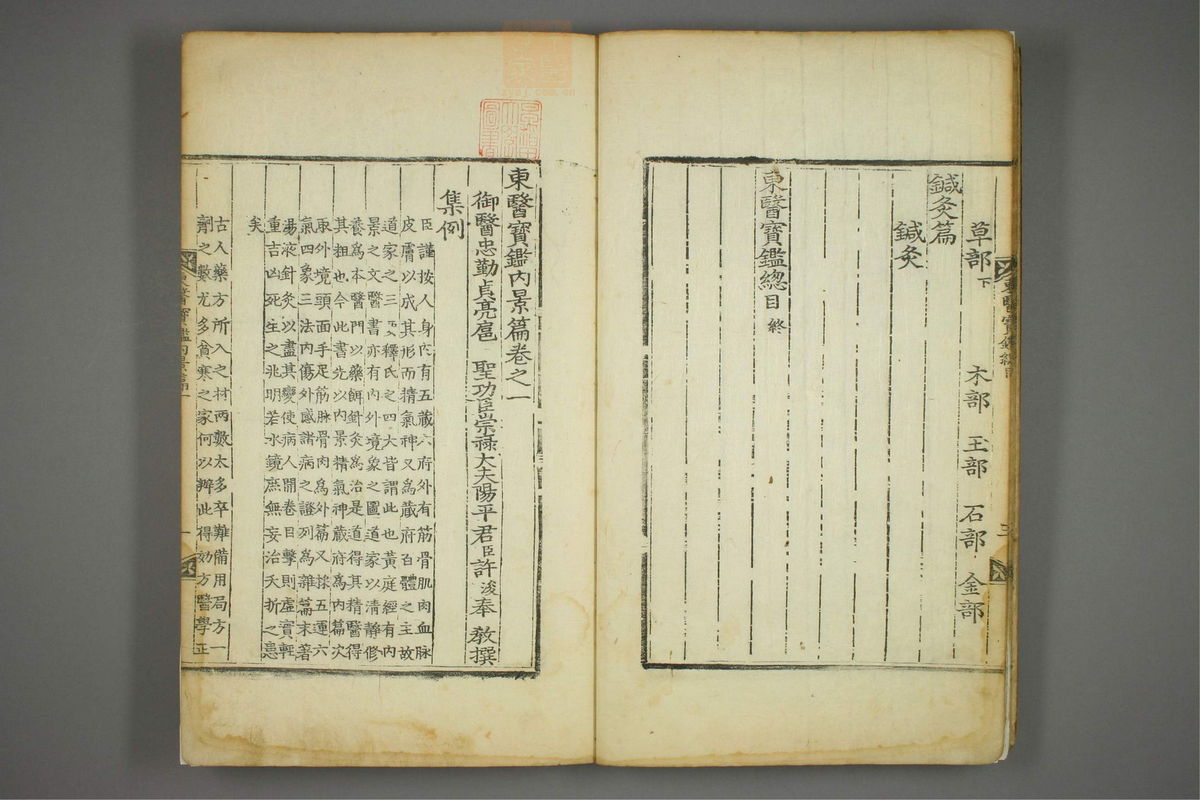 草部下 木部 玉部 石部 金部
鍼灸篇
鍼灸
東醫寶鑑總目 終
東醫寶鑑內景篇卷之一
御醫忠勤貞亮扈 聖功臣崇祿大夫陽平君臣許浚奉 敎撰
集例
臣謹按人身內有五藏六府外有筋骨肌肉血脉
皮膚以成其形而精氣神又爲藏府百體之主故
道家之三要釋氏之四大皆謂此也黃庭經有內
景之文醫書亦有內外境象之圖道家以淸靜修
養爲本醫門以藥餌針灸爲治是道得其精醫得
其粗也今此書先以內景精氣神藏府爲內篇次
取外境頭面手足筋脉骨肉爲外篇又採五運六
氣四象三法內傷外感諸病之證列爲雜篇末著
湯液針灸以盡其變使病人開卷目擊則虛實輕
重吉凶死生之兆明若水鏡庶無妄治夭折之患
矣
古人藥方所入之材兩數太多卒難備用局方一
劑之數尤多貧寒之家何以辦此得効方醫學正